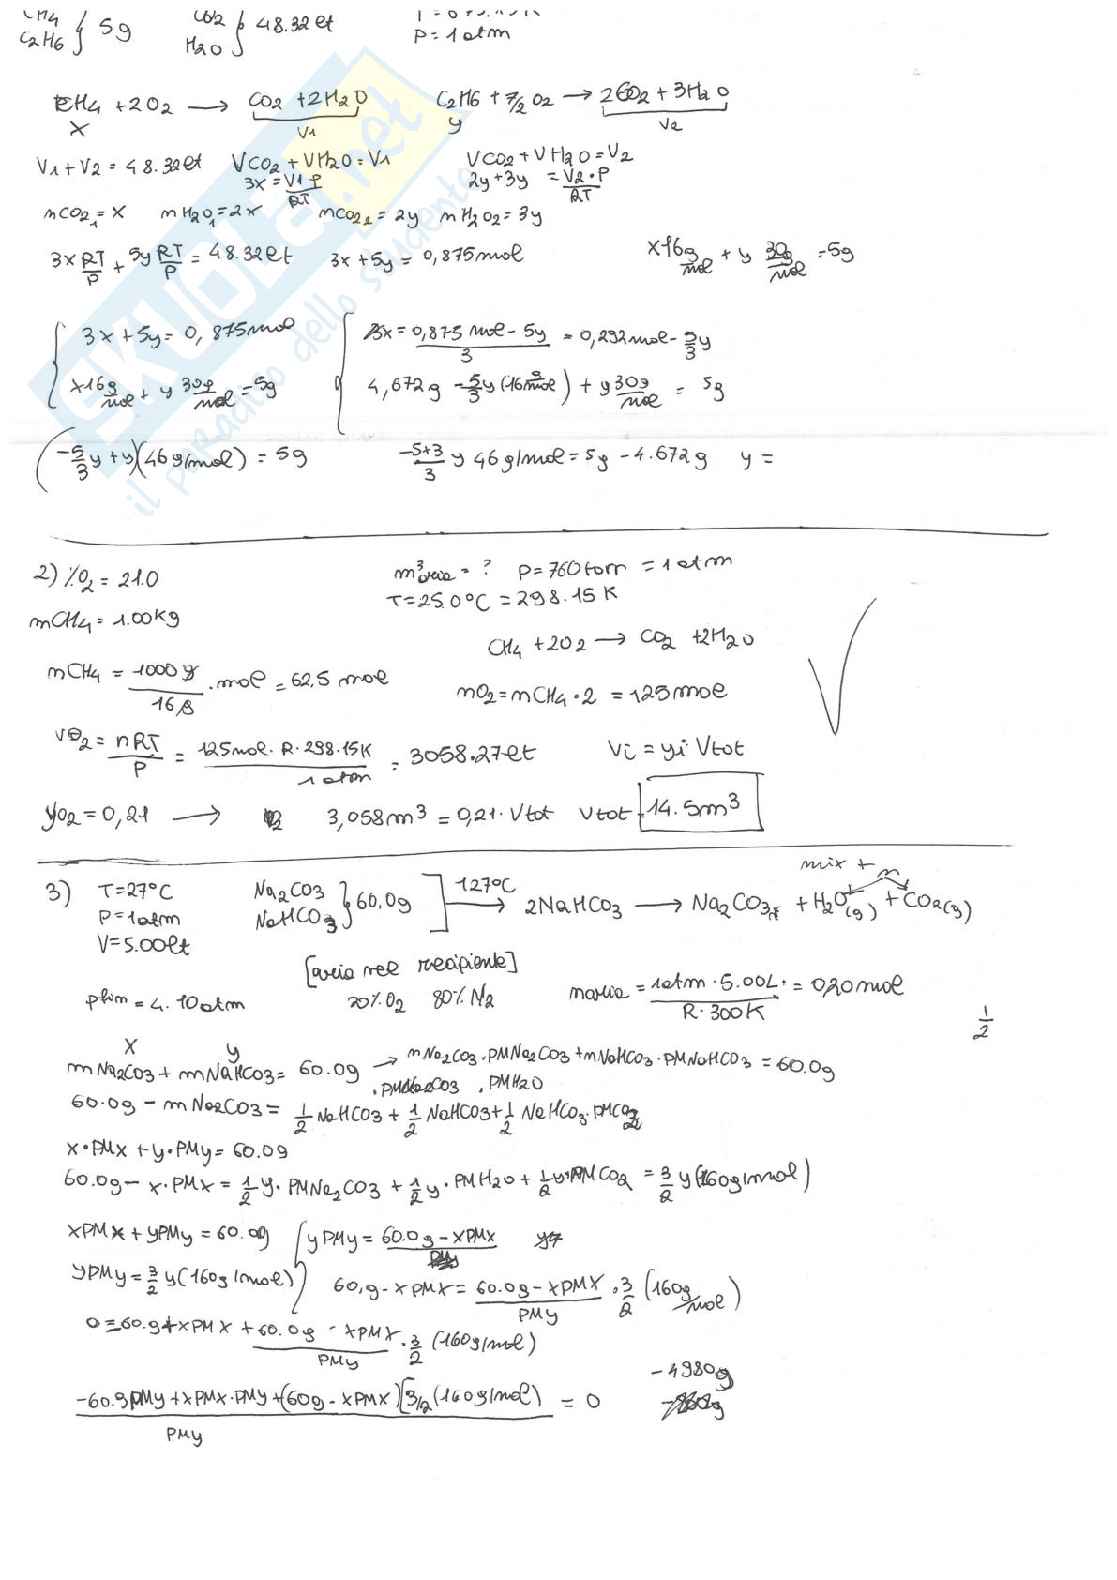 CH4
C2H6 } 5g CO2
H2O } 48.32lt
P = 1atm
CH4 + 2O2 → CO2 + 2H2O C2H6 + 7/2 O2 → 2CO2 + 3H2O
x V1 y V2
V1 + V2 = 48.32lt VCO2 + VH2O = V1 VCO2 + VH2O = V2
3x = V1·P/RT 2y+3y = V2·P/RT
nCO2,1 = x nH2O1 = 2x nCO2,2 = 2y nH2O2 = 3y
3x RT/P + 5y RT/P = 48.32lt 3x + 5y = 0,875mol x 16 g/mol + y 30g/mol = 5g
3x + 5y = 0,875mol 3x = 0,875 mol - 5y / 3 = 0,292mol - 5/3 y
x 16 g/mol + y 30g/mol = 5g 4,672g - 5/3 y (16 g/mol) + y 30g/mol = 5g
(-5/3 y + y)(46g/mol) = 5g -5+3/3 y 46g/mol = 5g - 4.672g y =
SKUOLA.net
il paradiso dello studente
2) %O2 = 21.0 m³aria = ? P = 760torr = 1atm
T = 25.0°C = 298.15K
mCH4 = 1.00Kg
CH4 + 2O2 → CO2 + 2H2O
nCH4 = 1000g/16g · mol = 62,5 mol nO2 = nCH4 · 2 = 125mol
VO2 = nRT/P = 125mol · R · 298.15K / 1atm = 3058.27lt Vi = yi Vtot
yO2 = 0,21 → 3,058m³ = 0,21 · Vtot Vtot = 14.5m³
3) T = 27°C Na2CO3
NaHCO3 } 60.0g ] 127°C → 2NaHCO3 → Na2CO3 + H2O(g) + CO2(g)
mix + n
P = 1atm
V = 5.00lt
[aria nel recipiente]
Pfin = 4.10atm 20% O2 80% N2 naria = 1atm · 5.00L / R · 300K = 0,20mol
1/2
x y
mNa2CO3 + mNaHCO3 = 60.0g → nNa2CO3 · PMNa2CO3 + nNaHCO3 · PMNaHCO3 = 60.0g
· PMNa2CO3 · PMH2O
60.0g - mNa2CO3 = 1/2 NaHCO3 + 1/2 NaHCO3 + 1/2 NaHCO3 · PMCO2
x · PMx + y · PMy = 60.0g
60.0g - x · PMx = 1/2 y · PMNa2CO3 + 1/2 y · PMH2O + 1/2 y · PMCO2 = 3/2 y (160g/mol)
xPMx + yPMy = 60.0g yPMy = 60.0g - xPMx
yPMy = 3/2 y (160g/mol) 60,g - xPMx = 60.0g - xPMx / PMy · 3/2 (160g/mol)
0 = 60.g + xPMx + 60.0g - xPMx / PMy · 3/2 (160g/mol)
-4980g
-60.gPMy + xPMx · PMy + (60g - xPMx) [3/2 (160g/mol) / PMy = 0